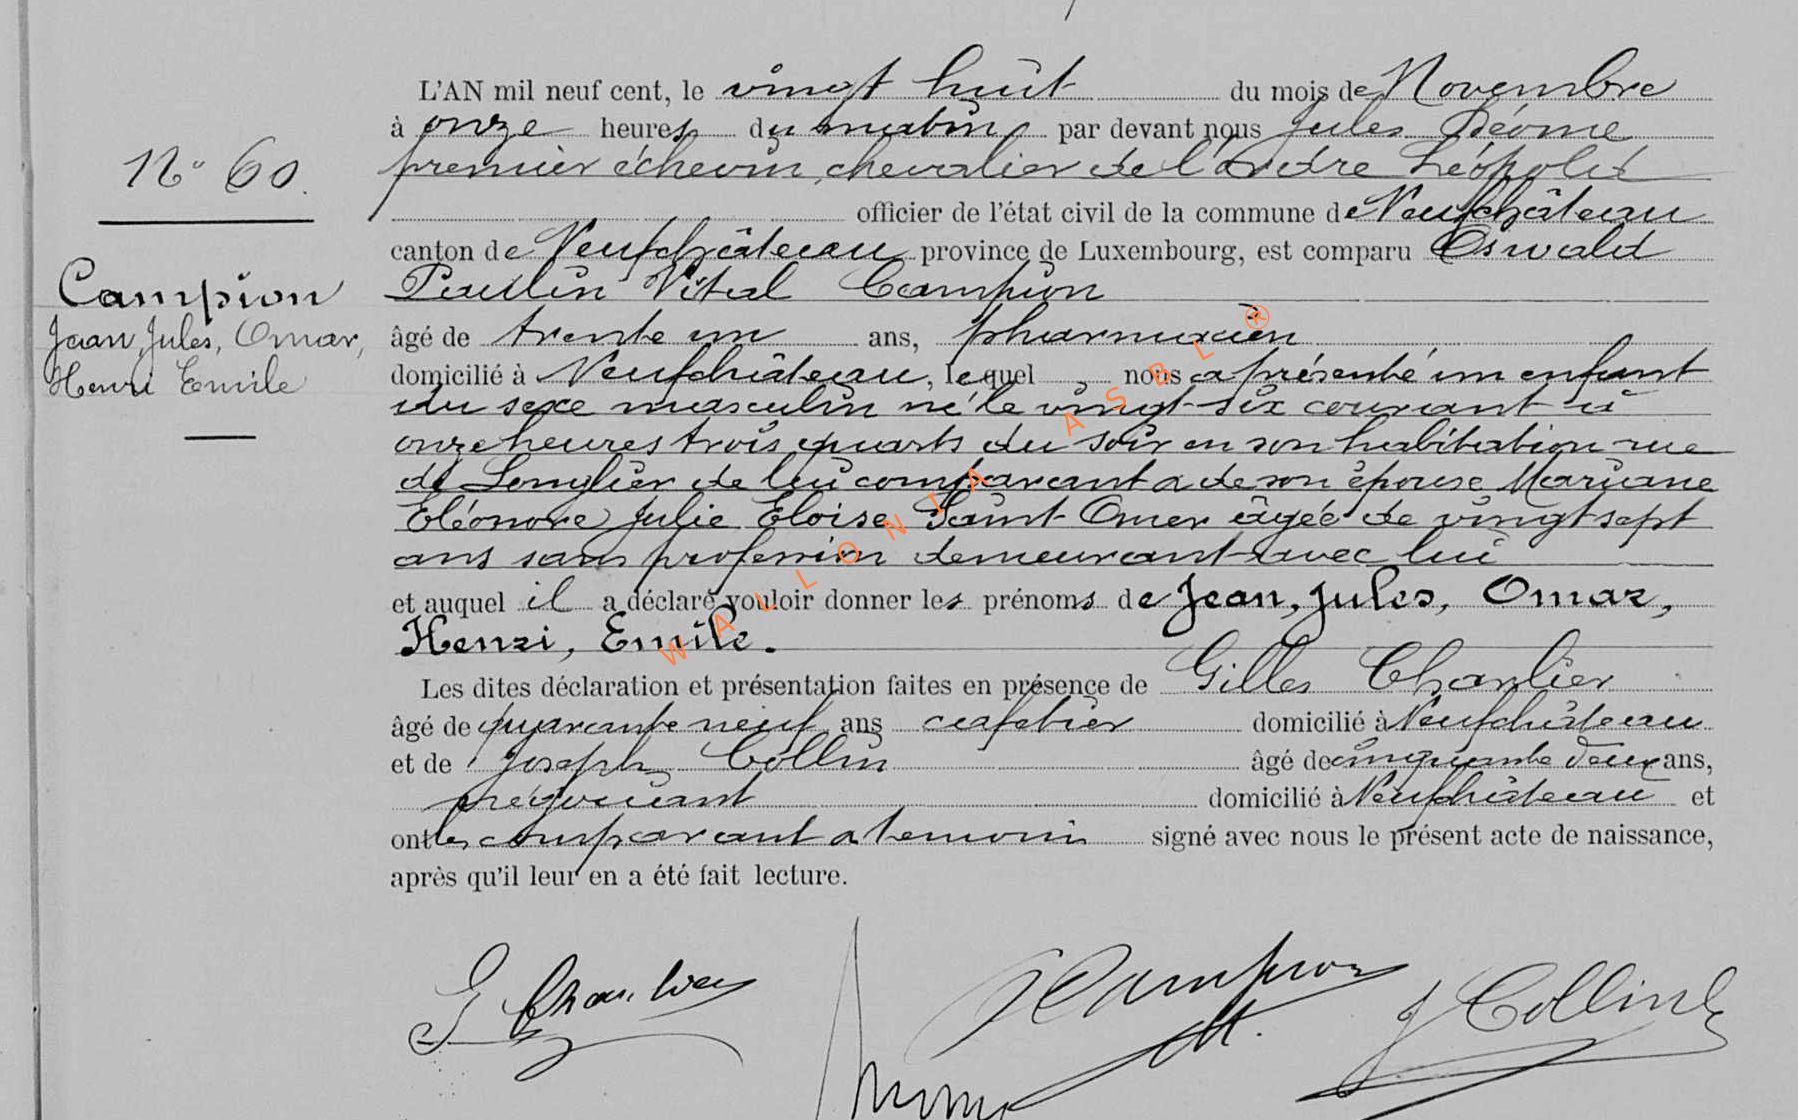 L'AN mil neuf cent, le vingt huit du mois de Novembre
à onze heures du matin par devant nous Jules Déome
premier échevin, chevalier de l'Ordre Léopold
N° 60.
officier de l'état civil de la commune de Neufchâteau
canton de Neufchâteau province de Luxembourg, est comparu Oswald
Paulin Vital Campion
Campion
Jean, Jules, Omar,
Henri Emile
âgé de trente un ans, pharmacien
domicilié à Neufchâteau, lequel nous a présenté un enfant
du sexe masculin né le vingt-six courant à
onze heures trois quarts du soir en son habitation rue
de Longlier de lui comparant & de son épouse Mariane
Eléonore Julie Eloise Saint Omer âgée de vingt sept
ans sans profession demeurant avec lui
et auquel il a déclaré vouloir donner les prénoms de Jean, Jules, Omar,
Henri, Emile.
Les dites déclaration et présentation faites en présence de Gilles Charlier
âgé de quarante neuf ans cafetier domicilié à Neufchâteau
et de Joseph Collin âgé de cinquante deux ans,
négociant domicilié à Neufchâteau et
ont les comparant & témoins signé avec nous le présent acte de naissance,
après qu'il leur en a été fait lecture.
WALLONIA ASBL ®
G Charlier
Campion
J Collin